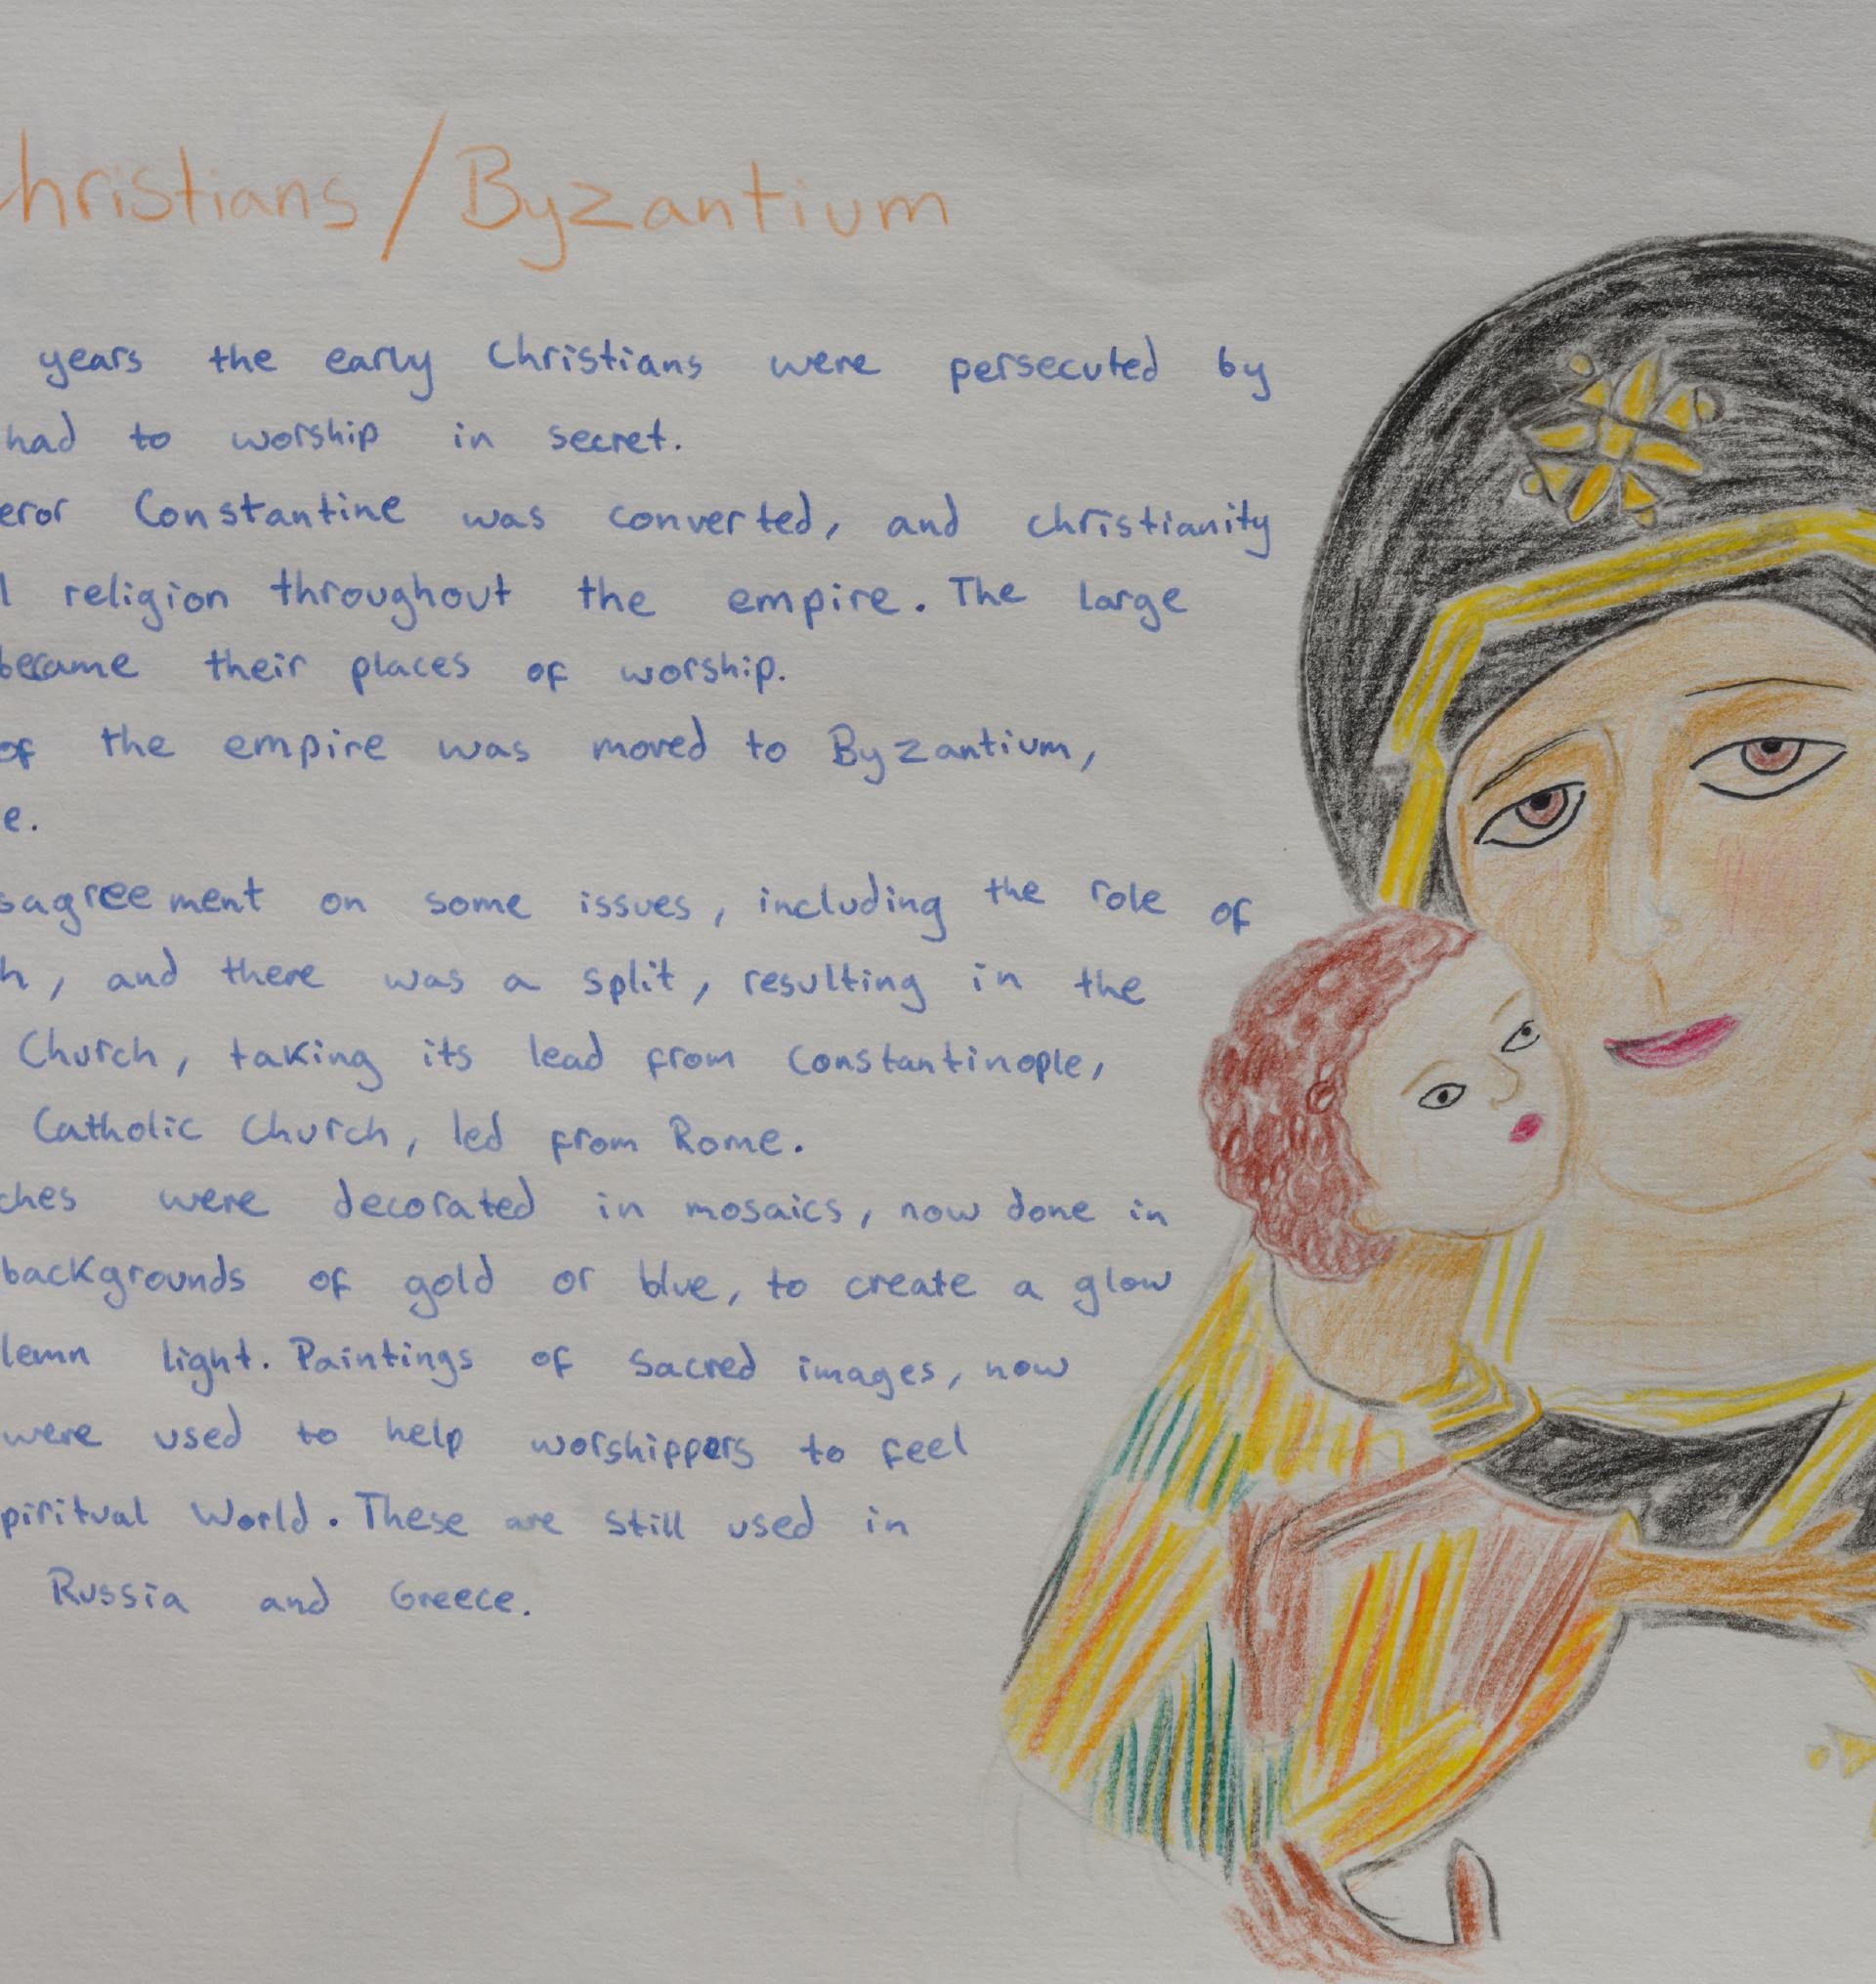 hristians / Byzantium
years the early Christians were persecuted by
had to worship in secret.
eror Constantine was converted, and christianity
l religion throughout the empire. The large
became their places of worship.
of the empire was moved to Byzantium,
e.
sagreement on some issues, including the role of
h, and there was a split, resulting in the
Church, taking its lead from Constantinople,
Catholic Church, led from Rome.
ches were decorated in mosaics, now done in
backgrounds of gold or blue, to create a glow
lemn light. Paintings of sacred images, now
were used to help worshippers to feel
piritual World. These are still used in
Russia and Greece.